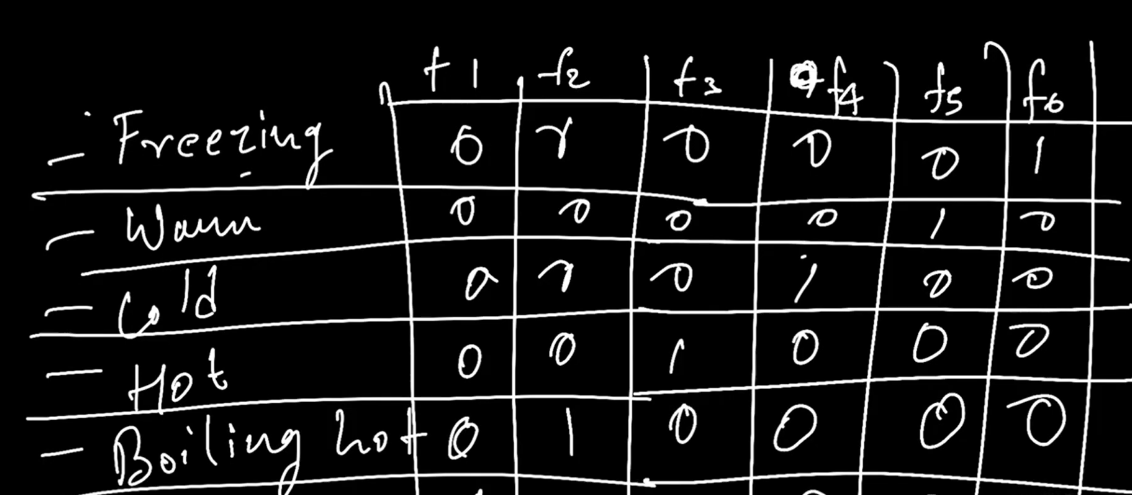 f1 f2 f3 f4 f5 f6
- Freezing 0 0 0 0 1
- Warm 0 0 0 0 1 0
- Cold 0 0 1 0 0
- Hot 0 0 1 0 0 0
- Boiling hot 0 1 0 0 0 0